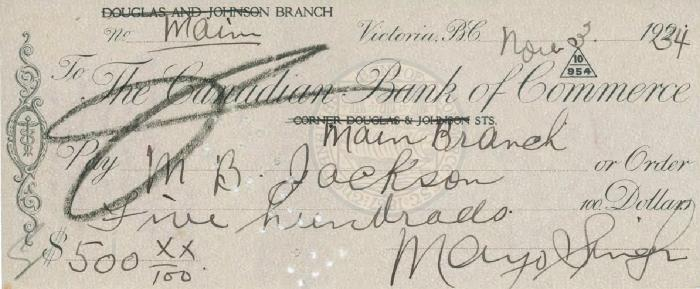 DOUGLAS AND JOHNSON BRANCH
No Main Victoria, B.C. Nov 23 1924
10
954
To The Canadian Bank of Commerce
CORNER DOUGLAS & JOHNSON STS.
Main Branch
Pay M B. Jackson or Order
Five hundrado. 100 Dollars
$500 XX/100. Mayo Singh